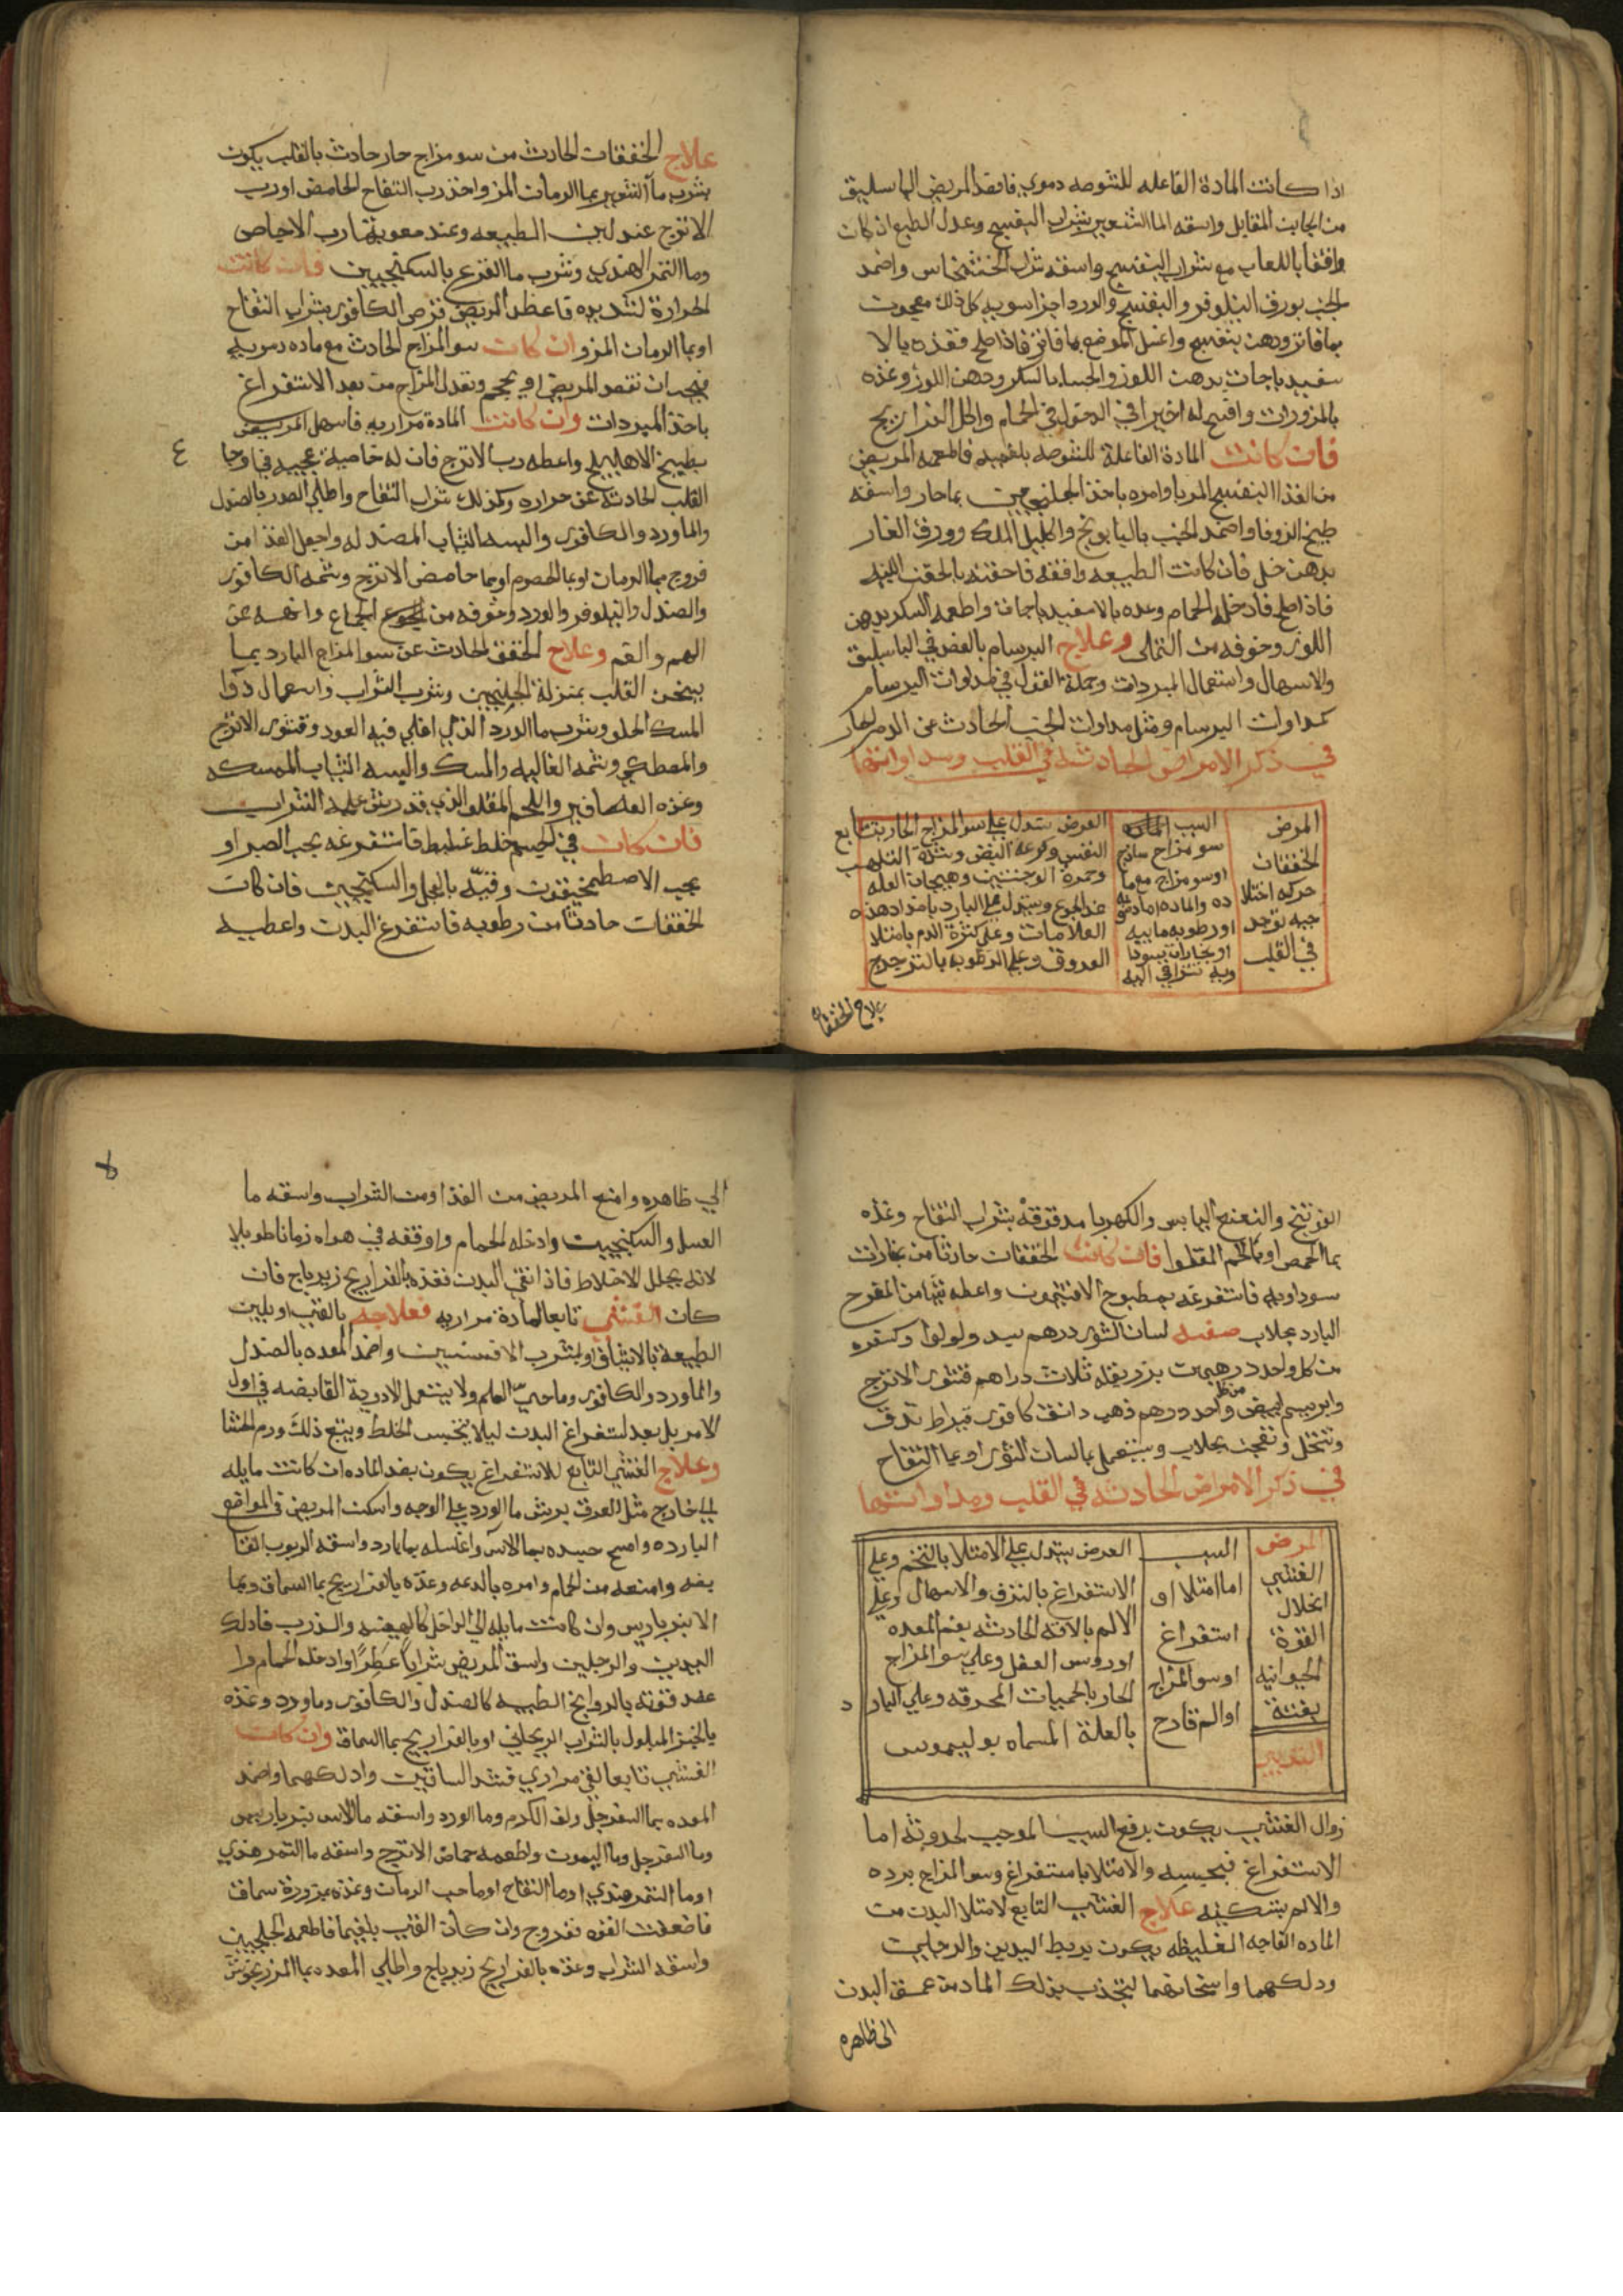 اذا كانت المادة الفاعله للشوصه دمويه فافصد المريض الباسليق
من الجانب المقابل واسقه الما الشعير بشراب البنفسج وعدل الطبع ان كان
واقفا باللعاب مع شراب البنفسج واسقه شراب الخشخاش واضمد
الجنب بورق النيلوفر والبنفسج والورد اجزا سويه كل ذلك معجون
بما فاتر ودهن بنفسج واغسل الموضع بما فاتر فاذا صلح فغذه بالا
سفيدباجات بدهن اللوز والحسا بالسكر ودهن اللوز وغذه
بالمزورات وافسح له اخيرا في الدخول في الحمام واكل الفراريج
فان كانت المادة الفاعلة للشوصه بلغميه فاطعمه المريض
من الغذا البنفسج المربا وامره باخذ الجلنجبين بما حار واسقه
طبيخ الزوفا واضمد الجنب بالبابونج واكليل الملك وورق الغار
بدهن خل فان كانت الطبيعه واقفه فاحقنه بالحقن اللينه
فاذا صلح فادخله الحمام وغده بالاسفيدباجات واطعمه السكر بدهن
اللوز وخوفه من التملي وعلاج البرسام بالفصد في الباسليق
والاسهال واستعمال المبردات وجملة القول في مداوات البرسام
كمداوات البرسام ومثل مداوات الجنب الحادث عن الدم الحار
في ذكر الامراض الحادثه في القلب ومداواتها
المرض
الخفقان
حركه اختلا
جيه توجد
في القلب
السبب
سو مزاج ساذج
او سو مزاج مع ما
ده والماده اما دمويه
او رطوبه مابيه
او بخارات سودا
ويه تتراقي اليه
العرض يستدل علي سو المزاج الحار بتتابع
النفس وسرعة النبض وشدة التلهب
وحمرة الوجنتين وهيجان العله
عند الجوع ويستدل علي البارد باضداد هذه
العلامات وعلي كثرة الدم بامتلا
العروق وعلي الرطوبه بالترجرج
علاج الخفقان
علاج الخفقان الحادث من سو مزاج حار حادث بالقلب يكون
بشرب ما الشعير بما الرمان المز واخذ رب التفاح الحامض او رب
الاترج عند لين الطبيعه وعند صعوبتها رب الاجاص
وما التمر الهندي وشرب ما القرع بالسكنجبين فان كانت
الحرارة شديده فاعط المريض قرص الكافور بشراب التفاح
او بما الرمان المز وان كان سو المزاج الحادث مع ماده دمويه
فيجب ان تفصد المريض او يحجم وتعدل المزاج من بعد الاستفراغ
باخذ المبردات وان كانت المادة مراريه فاسهل المريض
بطبيخ الاهليلج واعطه رب الاترج فان له خاصية عجيبه في اوجا
٤
القلب الحادثه عن حراره وكذلك شراب التفاح واطلي الصدر بالصندل
والماورد والكافور والبسه الثياب المصندله واجعل الغذا من
فروج بما الرمان او بما الحصرم او بما حامض الاترج وشمه الكافور
والصندل والنيلوفر والورد وخوفه من الجماع وانهه عن
الهم والغم وعلاج الخفق الحادث عن سو المزاج البارد بما
يسخن القلب بمنزلة الجلنجبين وشرب الشراب واستعمال دوا
المسك الحلو وبشرب ما الورد الذي اغلي فيه العود وقشور الاترج
والمصطكي وشمه الغاليه والمسك والبسه الثياب الممسكه
وغذه العصافير واللحم المقلو الذي قد رش عليه الشراب
فان كان في الجسم خلط غليظ فاستفرغه بحب الصبر او
بحب الاصطمخيقون وقيّه بالفجل والسكنجبين فان كان
الخفقان حادثا من رطوبه فاستفرغ البدن واعطيه
الفوتنج والنعنع اليابس والكهربا مدقوقة بشراب التفاح وغذه
بما الحمص او باللحم المقلوا فان كانت الخفقان حادثا من بخارات
سوداويه فاستفرغه بمطبوخ الافتيمون واعطه شيا من المفرح
البارد بجلاب صفته لسان الثور درهم بسد ولولوا وكسفره
من كل واحد درهمين بزر بقله ثلاث دراهم قشور الاترج
وابريسم من كل واحد درهم ذهب دانق كافور قيراط تدق
وتنخل وتعجن بجلاب ويستعمل بما لسان الثور او بما التفاح
في ذكر الامراض الحادثه في القلب ومداواتها
المرض
الغشي
انحلال
القوة
الحيوانيه
بغتة
التدبير
السبب
اما امتلا او
استفراغ
او سو المزاج
او الم قادح
العرض يستدل علي الامتلا بالتخم وعلي
الاستفراغ بالنزف والاسهال وعلي
الالم بالافه الحادثه بفم المعده
او روس العضل وعلي سو المزاج
الحار بالحميات المحرقه وعلي البارد
بالعلة المسماه بوليموس
زوال الغشي يكون برفع السبب الموجب لحدوثه اما
الاستفراغ فبحبسه والامتلا باستفراغ وسو المزاج برده
والالم بتسكينه علاج الغشي التابع لامتلا البدن من
الماده الفاجه الغليظه يكون بربط اليدين والرجلين
ودلكهما واسخانهما لتجذب بذلك الماده من عمق البدن
الى ظاهره
الي ظاهره وامنع المريض من الغذا ومن الشراب واسقه ما
العسل والسكنجبين وادخله الحمام واوقفه في هواه زمانا طويلا
لانه يحلل الاخلاط فاذا انقي البدن فغذه بالفراريج زيرباج فان
كان الغشي تابعا لمادة مراريه فعلاجه بالقي او بلين
الطبيعة بالاشياف او بشرب الافسنتين واضمد المعده بالصندل
والماورد والكافور وما حي العلم ولا يستعمل الادوية القابضه في اول
الامر بل بعد استفراغ البدن ليلا يحتبس الخلط ويتبع ذلك ورم الحشا
وعلاج الغشي التابع للاستفراغ يكون بضد الماده ان كانت مايله
الي خارج مثل العرق يرش ما الورد علي الوجه واسكن المريض في المواضع
البارده وامسح جسده بما الاس واغسله بما بارد واسقه الربوب القا
بضه وامنعه من الحمام وامره بالدعه وغذه بالفراريج بما السماق وبما
الانبرباريس وان كانت مايله الي الداخل كالهيضه والذرب فادلك
اليدين والرجلين واسق المريض شرابا عطرا وادخله الحمام وا
عضد قوته بالروايح الطيبه كالصندل والكافور وماورد وغذه
بالخبز المبلول بالشراب الريحاني او بالفراريج بما السماق وان كانت
الغشي تابعا لقي مراري فشد الساقين وادلكهما واضمد
المعده بما السفرجل ولف الكرم وما الورد واسقه ما الاس
وما السفرجل وما الليمون واطعمه حماض الاترج واسقه ما التمر هندي
او ما التمر هندي او ما التفاح او ما حب الرمان وغذه بمزورة سماق
فان ضعفت القوه ففروج وان كان القي بلغميا فاطعمه الجلنجبين
واسقه الشراب وغذه بالفراريج زيرباج واطلي المعده بما المرزنجوش